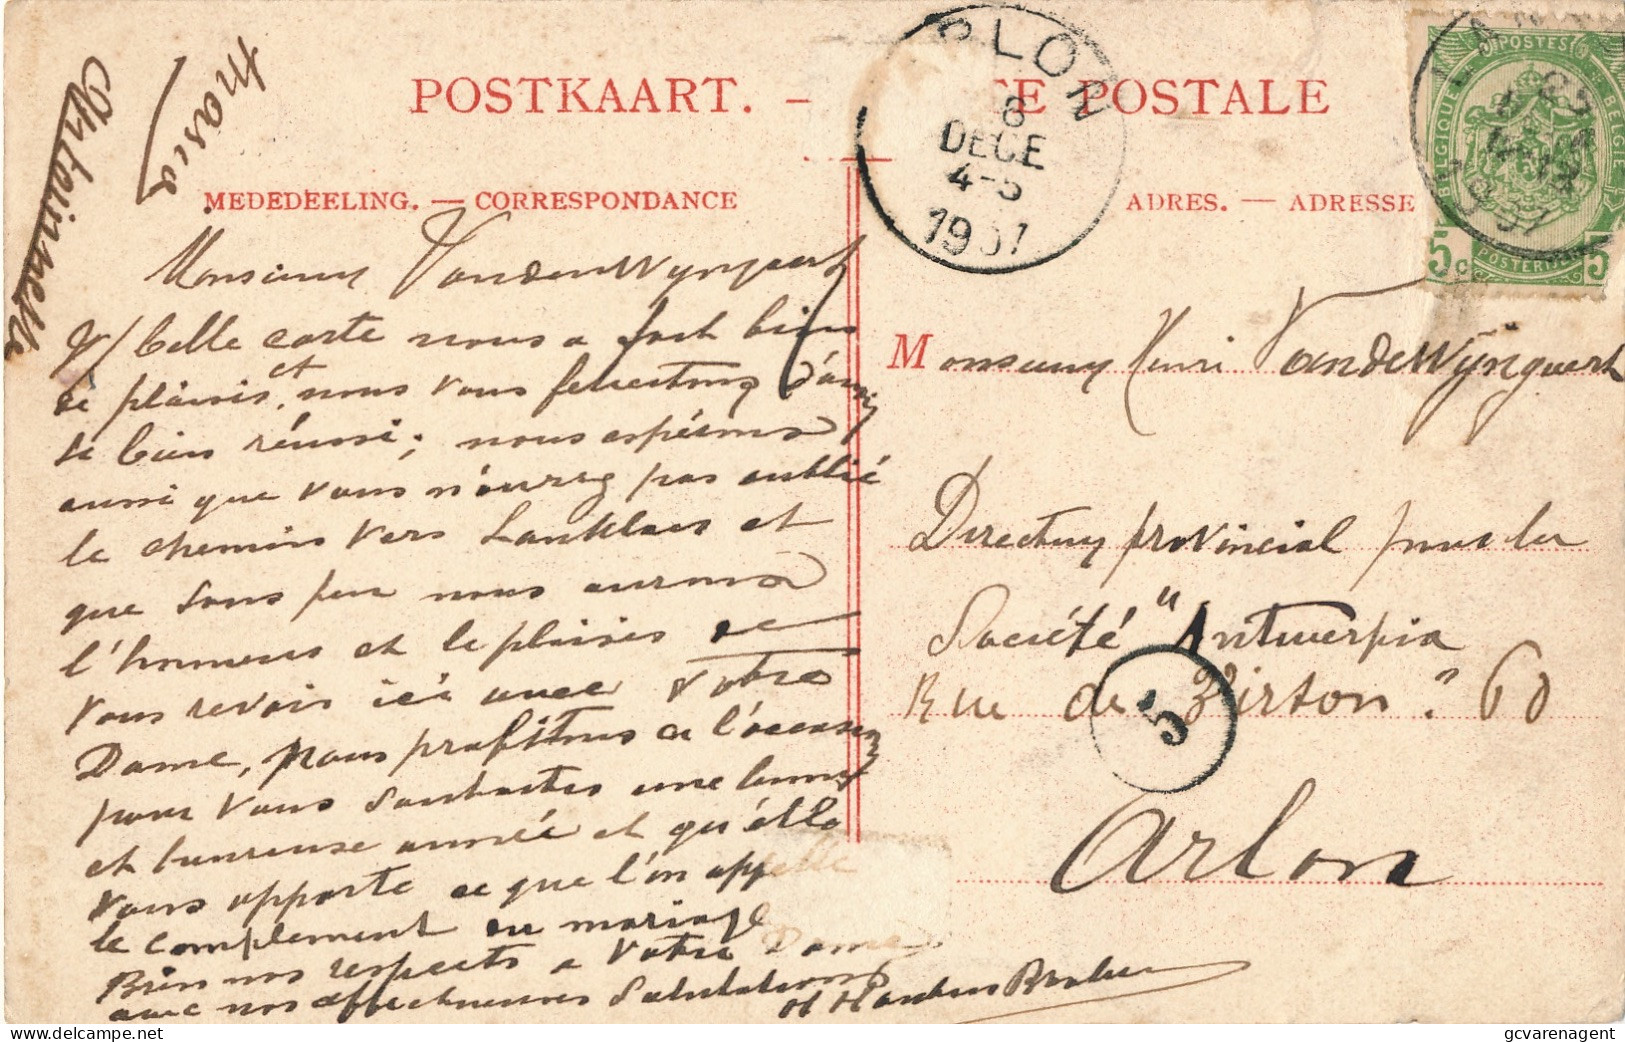 POSTKAART. – TE POSTALE
MEDEDEELING. — CORRESPONDANCE
ADRES. — ADRESSE
Maria
Antoinnette
Monsieur VandenWyngaert
V/ belle carte nous a fait bien
de plaisir, et nous vous felicitons d'avoir
si bien réussi; nous espérons
aussi que vous n'aurez pas oublié
le chemin vers Lanklaer et
que sous peu nous aurons
l'honneur et le plaisir de
vous revoir ici avec votre
Dame, Nous profitons de l'occasion
pour vous souhaiter une bonne
et heureuse année et qu'elle
vous apporte ce que l'on appelle
le complement du mariage
Bien nos respects a Votre Dame
avec nos affectueuses Salutations
H
ARLON
8
DECE
4-5
1907
POSTES
BELGIQUE
BELGIË
POSTERIJEN
5c
5
Monsieur Henri VandeWÿngaert
Directeur provincial pour la
Société "Antwerpia
Rue de Virton." 60
5
Arlon
gcvarenagent